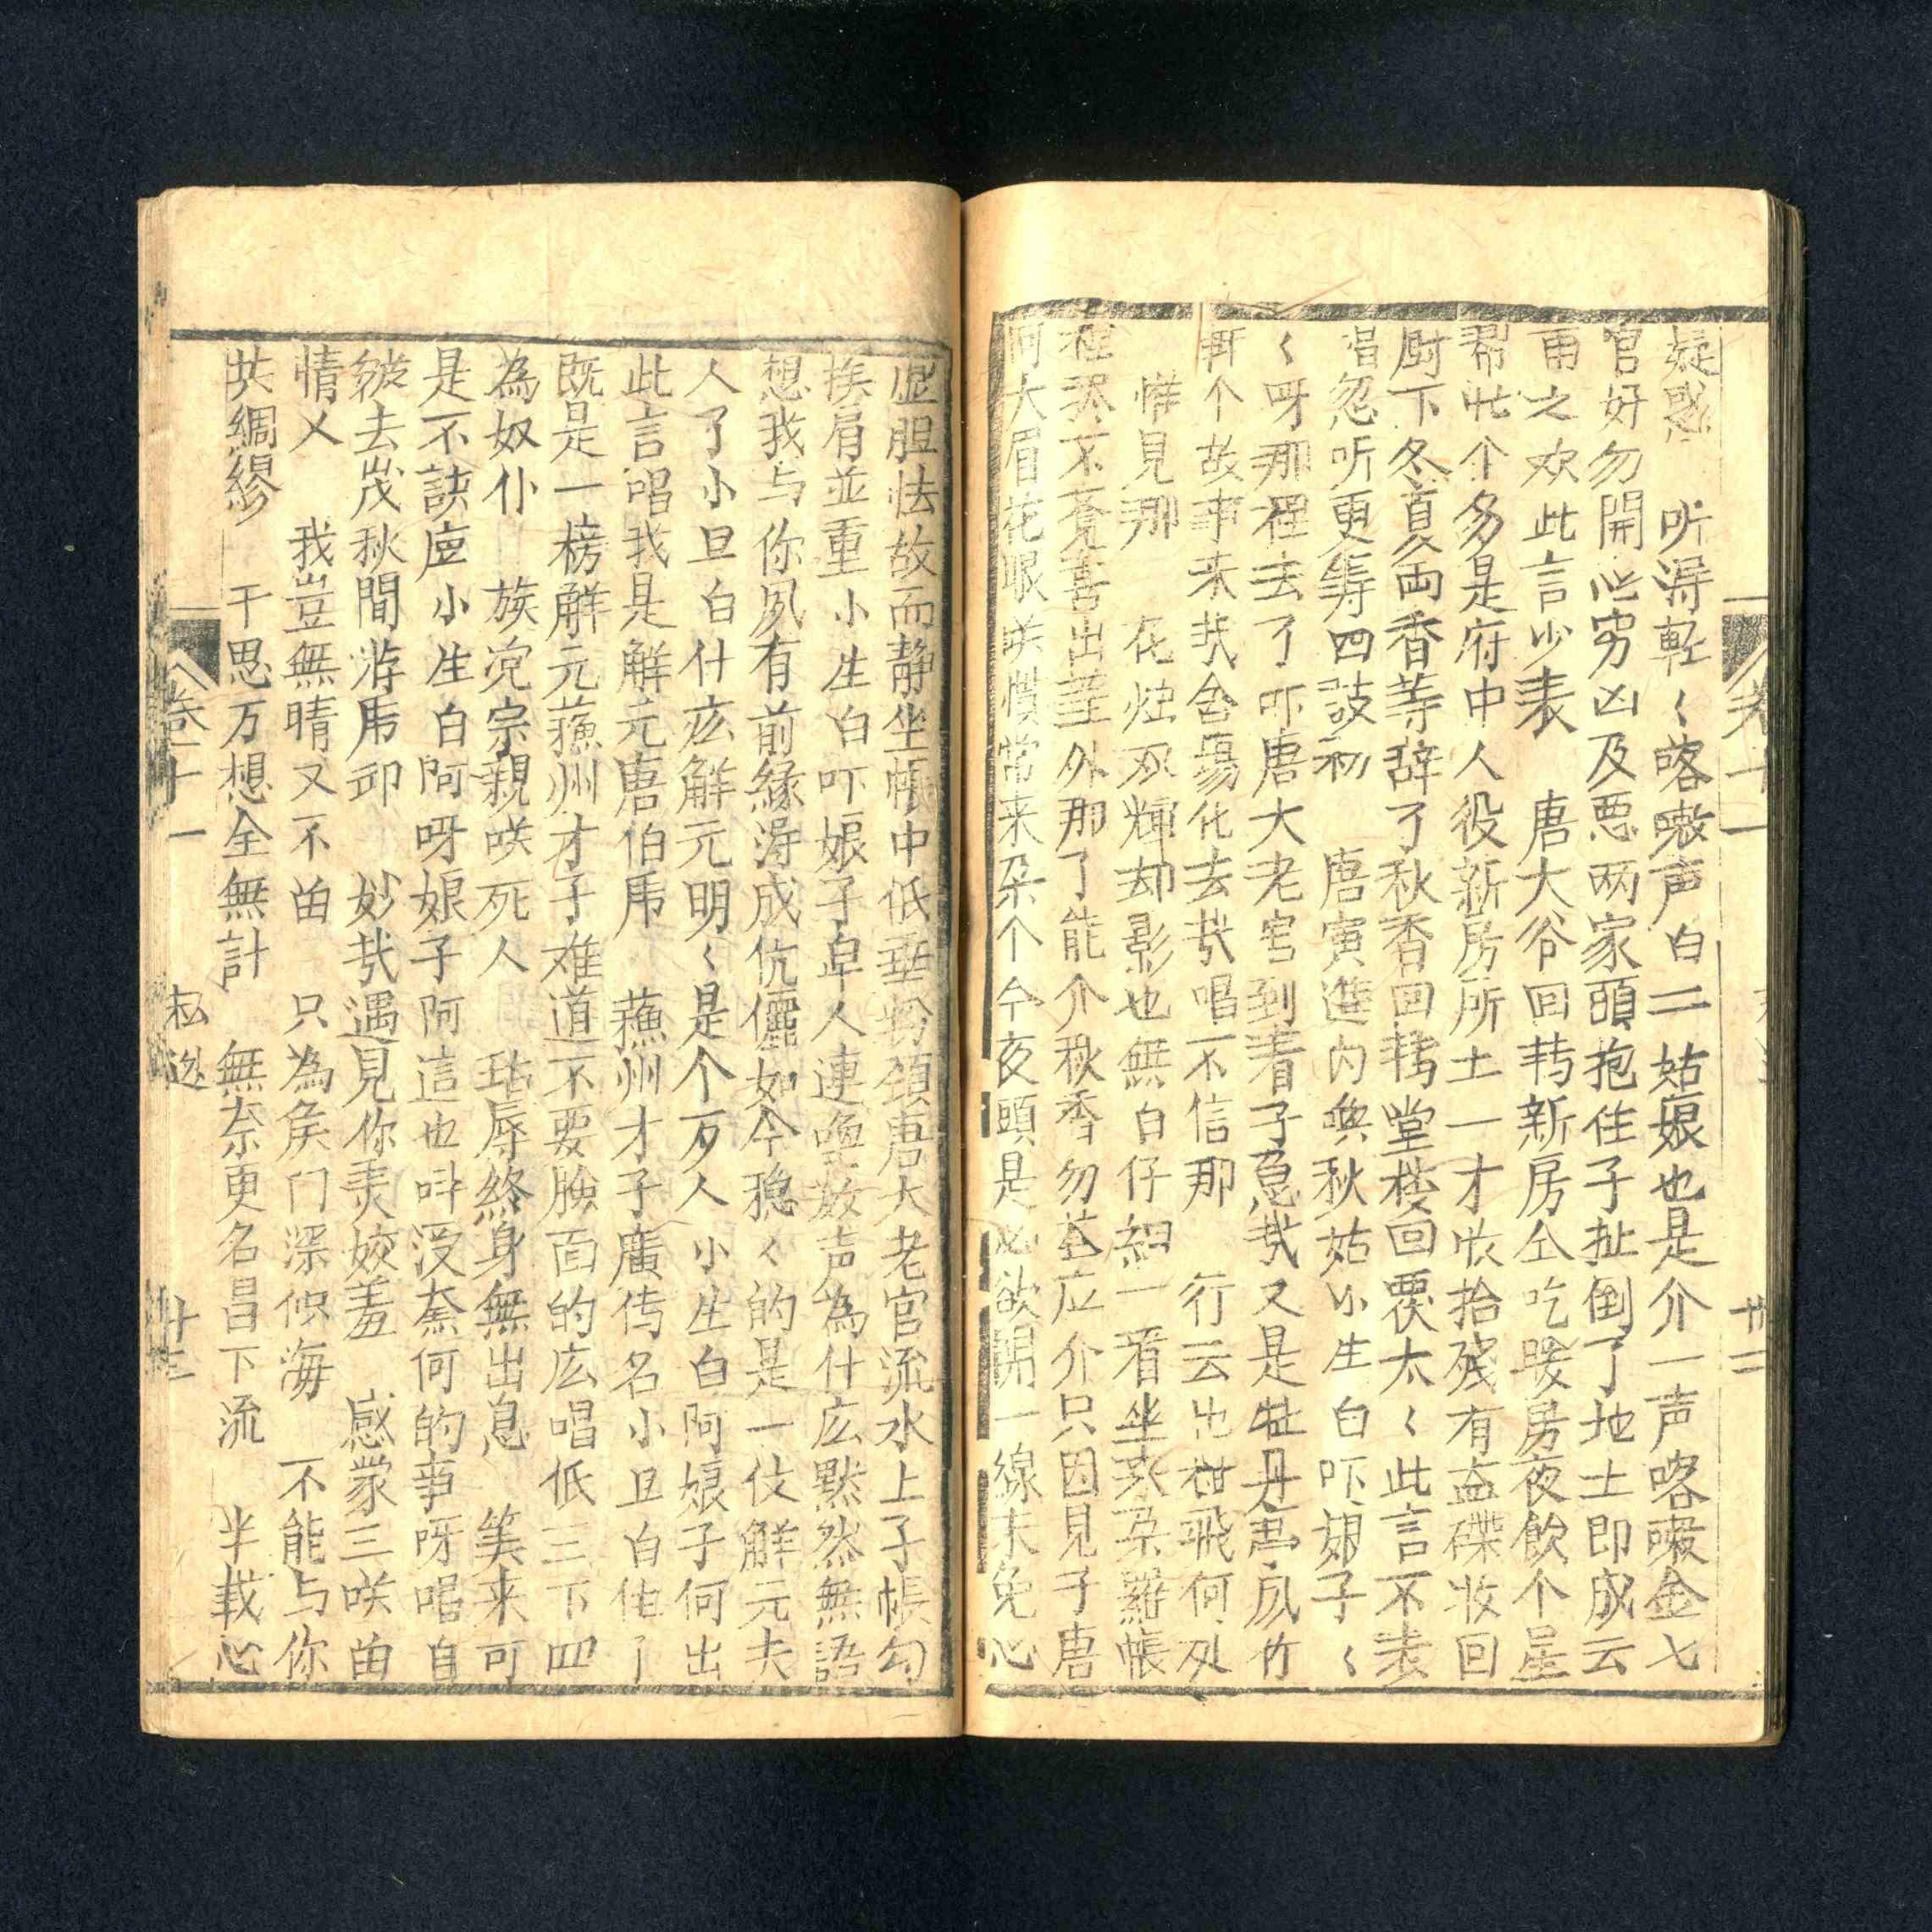 疑惑　听淂輕〻喀嗽声白二姑娘也是介一声咯嗽金七
官好勿開心穷凶及悪两家頭抱住子扯倒了地土即成云
雨之欢此言少表　唐大爷回转新房仝吃暖房夜飲个星
帮忙个多是府中人役新房所土一才收拾残有盃碟收回
厨下冬夏両香等辞了秋香回转堂楼回覆太〻此言不表
唱忽听更筹四鼓初　唐寅進内喚秋姑小生白吓娘子〻
〻呀那裡去了吓唐大老官到着子急哉又是牡丹畵夙竹
个故事来哉含暘化去哉唱不信那　行云出岫飛何処
惟見那　花燭双輝却影也無白仔細一看坐来朶羅帳
裡不覚喜出望外那了能介秋香勿荅应介只因見子唐
阿大眉花眼咲慣常来朶个今夜頭是必欲開一線未免心
虚胆怯故而静坐帳中低垂粉頸唐大老官流水上子帳勾
挨肩並重小生白吓娘子卑人連喚数声為什庅黙然無語
想我与你夙有前緣淂成伉儷如今穏〻的是一位解元夫
人了小旦白什庅解元明〻是个歹人小生白阿娘子何出
此言唱我是解元唐伯虎　蘓州才子廣传名小旦白住了
既是一榜解元蘓州才子难道不要臉面的庅唱低三下四
為奴仆　族党宗親咲死人　玷辱終身無出息　笑来可
是不諛虚小生白阿呀娘子阿這也呌没奈何的事呀唱自
従去岁秋間游虎邱　妙哉遇見你羙姣羞　感蒙三咲留
情乂　我豈無晴又不留　只為侯门深似海　不能与你
共綢繆　千思万想全無計　無奈更名昌下流　半載心
卷十一　廿二
卷十一　廿三